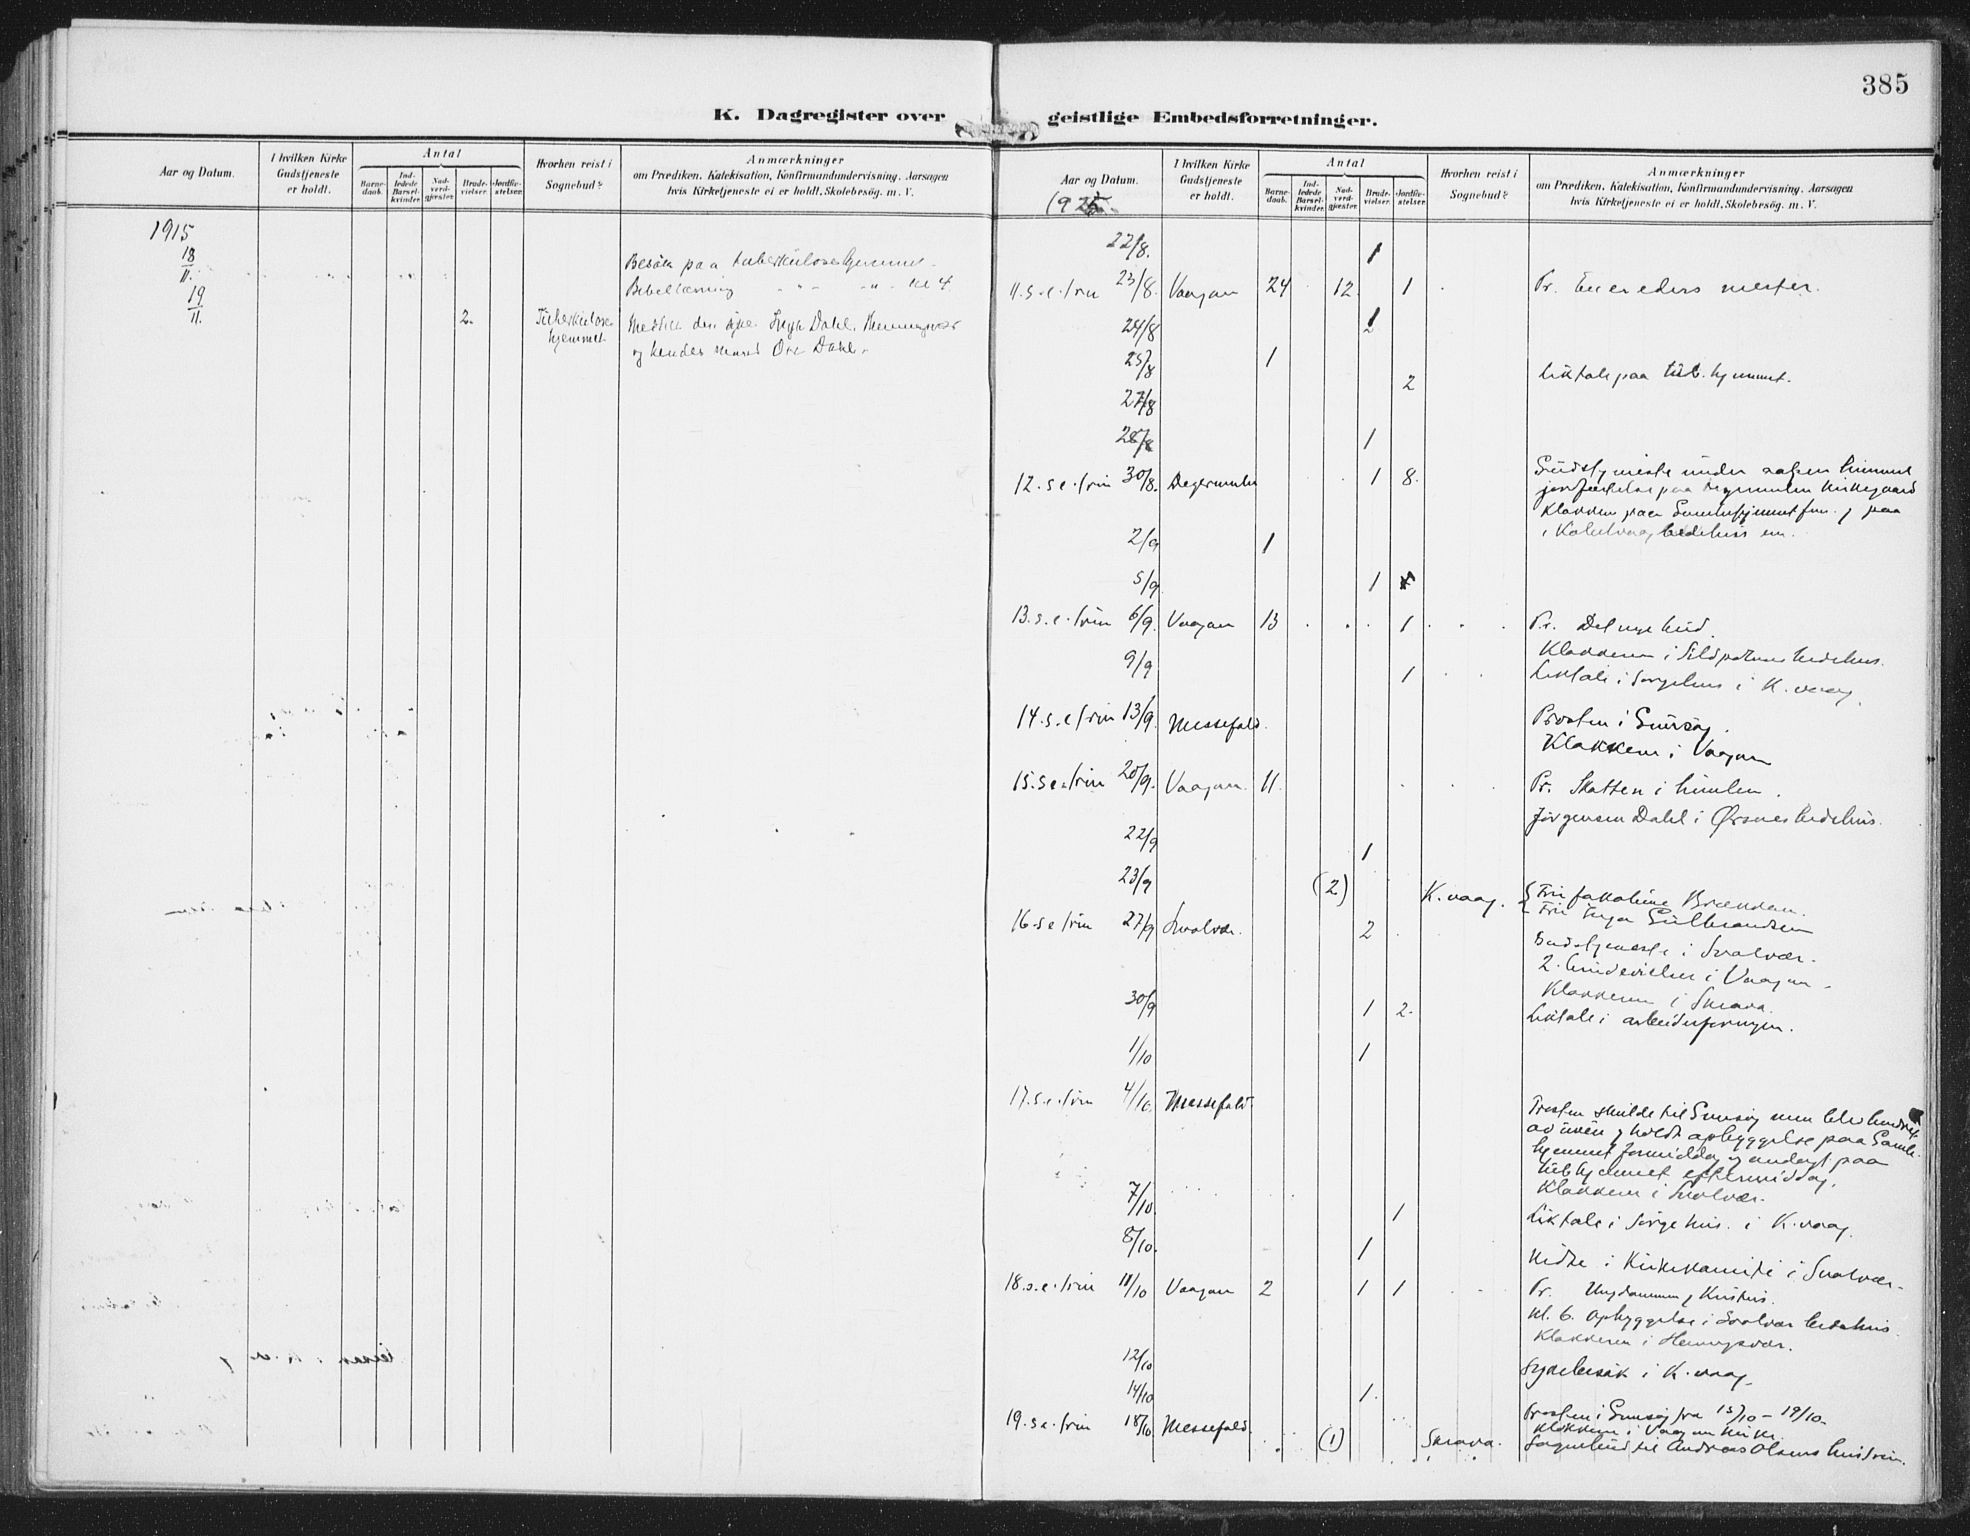 385
K. Dagregister over geistlige Embedsforretninger.
Aar og Datum.
I hvilken Kirke Gudstjeneste er holdt.
Antal
Barnedaab.
Indledede Barselkvinder.
Nadverdgjæster.
Brudevielser.
Jordfæstelser.
Hvorhen reist i Sognebud?
Anmærkninger
om Prædiken. Katekisation, Konfirmandundervisning. Aarsagen
hvis Kirketjeneste ei er holdt. Skolebesög. m. V.
1915
18/11. Besök paa tuberkulosehjemmet.
Bibellæsning kl 4
19/11. 2. Tuberkulosehjemmet Dahl, Henningsvær
og hendes mand Dahl.
Aar og Datum.
I hvilken Kirke Gudstjeneste er holdt.
Antal
Barnedaab.
Indledede Barselkvinder.
Nadverdgjæster.
Brudevielser.
Jordfæstelser.
Hvorhen reist i Sognebud?
Anmærkninger
om Prædiken. Katekisation, Konfirmandundervisning. Aarsagen
hvis Kirketjeneste ei er holdt, Skolebesög. m. V.
1925.
22/8. 1
11.s.e.trin 23/8. Vaagan 24 12 1 Pr. En er eders mester.
24/8
25/8 1
27/8 2 Liktale paa tub.hjemmet.
28/8 1
12.s.e.trin 30/8. Digermulen 1 8. Gudstjeneste under aapen himmel
jordfæstelse paa Digermulen kirkegaard
Klokkeren paa Gamlehjemmet fm. og paa
i Kabelvaag bedehus em.
2/9 1
5/9 1
13.s.e.trin 6/9. Vaagan 13 1 Pr. Det nye bud.
Klokkeren i Sildpolnes bedehus.
9/9 1 Liktale i Sørgehus i K.vaag.
14.s.e.trin 13/9. Messefald. Prosten i Gimsøy.
Klokkeren i Vaagan
15.s.e.trin 20/9. Vaagan. 11. Pr. Skatten i himlen.
Jørgensen Dahl i Ørsnes bedehus.
22/9 1
23/9 (2) K.vaag. Fru Jakobine Brækkan.
Fru Inga Gulbrandsen
16.s.e.trin 27/9 Svolvær. 2 Gudstjeneste i Svolvær.
2. brudevielser i Vaagan.
Klokkeren i Skrova.
30/9 1 2. Liktale i arbeiderforeningen.
1/10 1
17.s.e.trin 4/10. Messefald. Prosten skulde til Gimsøy men blev hindret
av uveir og holdt opbyggelse paa Gamle-
hjemmet formiddag og andagt paa
tubhjemmet eftermiddag.
Klokkeren i Svolvær.
7/10. 1 Liktale i Sørgehus. i K.vaag.
8/10. 1 Møte i Kirkekomite i Svolvær.
18.s.e.trin 11/10 Vaagan 2 1 1 Pr. Ungdommen og Kristus.
Kl. 6. Opbyggelse i Svolvær bedehus.
Klokkeren i Henningsvær.
12/10 Sykebesøk i K.vaag.
14/10 1.
19.s.e.trin 18/10 Messefald. (1) Skrova. Prosten i Gimsøy fra 15/10 - 19/10.
Klokkeren i Vaagan kirke.
Sognebud til Andreas Olsens hustru.